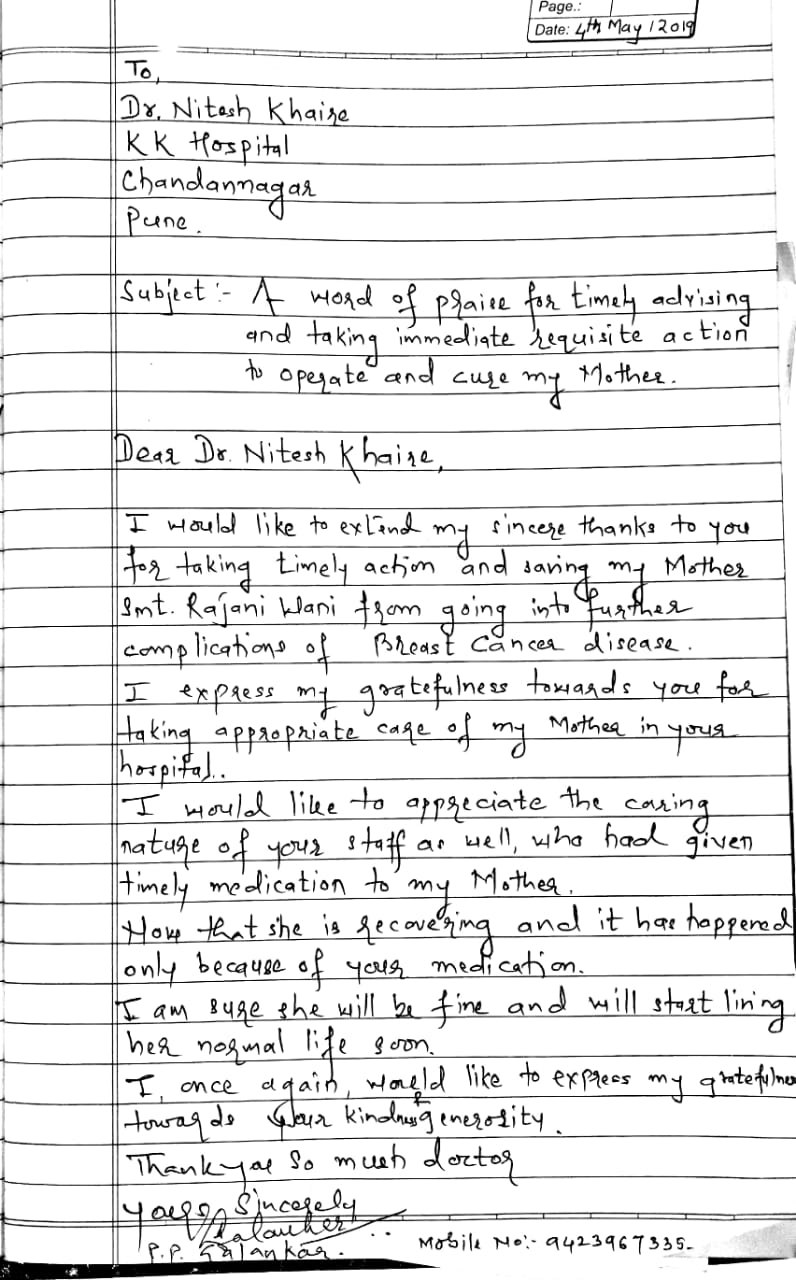 Page.:
Date: 4th May / 2019
To,
Dr. Nitesh Khaire
KK Hospital
Chandannagar
Pune.
Subject :- A word of praise for timely advising
and taking immediate requisite action
to operate and cure my Mother.
Dear Dr. Nitesh Khaire,
I would like to extend my sincere thanks to you
for taking timely action and saving my Mother
Smt. Rajani Wani from going into further
complications of Breast Cancer disease.
I express my gratefulness towards you for
taking appropriate care of my Mother in your
hospital..
I would like to appreciate the caring
nature of your staff as well, who had given
timely medication to my Mother.
Now that she is recovering and it has happened
only because of your medication.
I am sure she will be fine and will start living
her normal life soon.
I, once again, would like to express my gratefulness
towards your kindness & generosity.
Thank you so much doctor
yours Sincerely
P.P. Salankar.
Mobile No:- 9423967335-